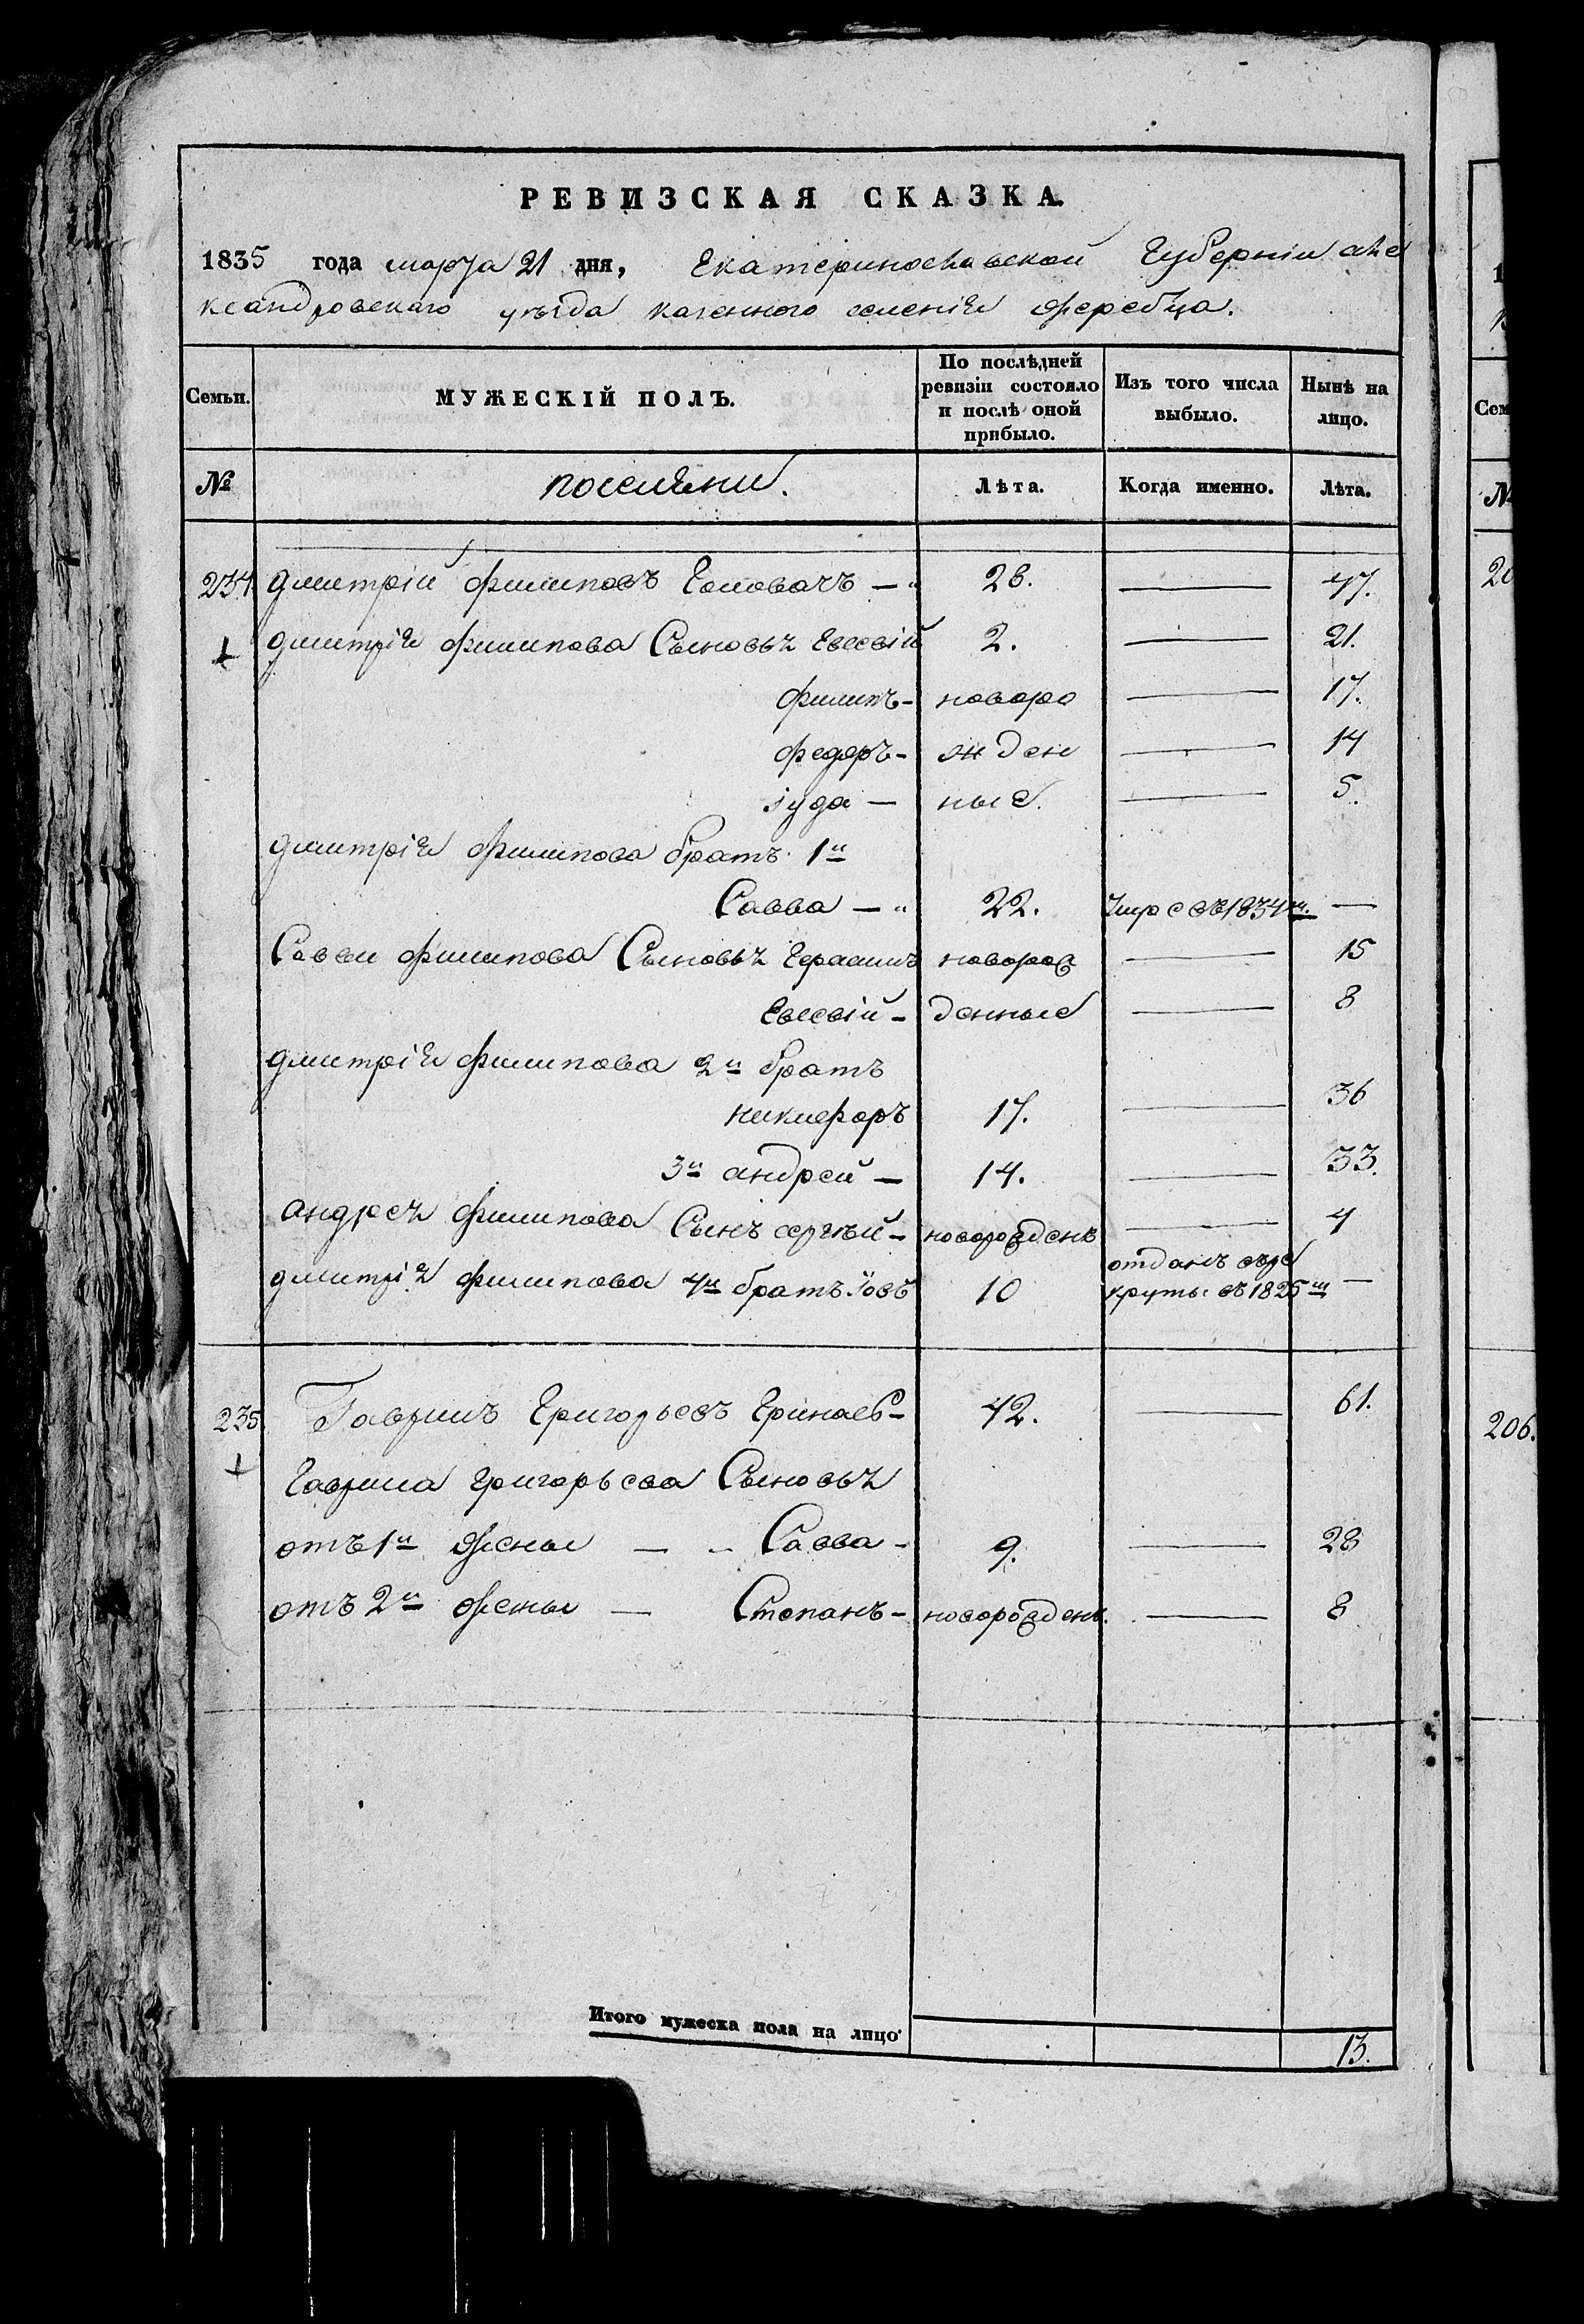 РЕВИЗСКАЯ СКАЗКА.
1835 года марта 21 дня, Екатеринославской Губерніи Але
ксандровскаго уѣзда казенного селенія Жеребца.
Семьи. МУЖЕСКІЙ ПОЛЪ. По послѣдней ревизіи состояло и послѣ оной прибыло. Изъ того числа выбыло. Нынѣ на лицо.
№ поселяни. Лѣта. Когда именно. Лѣта.
234. Дмитрій Филиповъ Головачъ — 28. — 47.
Дмитрія Филипова Сыновья Евсевій 2. — 21.
Филипъ - новоро — 17.
Федоръ - жден — 14
Іуда — ные. — 5.
Дмитрія Филипова братъ 1й
Савва — 22. Умре въ 1834м. —
Саввы Филипова Сыновья Герасимъ новорож — 15
Евсевій - денные — 8
Дмитрія Филипова 2й братъ
Никифоръ 17. — 36
3й Андрей — 14. — 33.
Андрея Филипова Сынъ Сергѣй - новорожденъ — 4
Дмитрія Филипова 4й братъ Іовъ 10 отданъ въ ре
круты въ 1825м —
235. Гаврилъ Григорьевъ - 42. — 61.
Гаврила Григорьева Сыновья
отъ 1й жены — Савва - 9. — 28
отъ 2й жены — Степанъ - новорожденъ. — 8
Итого мужеска пола на лицо 13.
Сем
№
20
206.